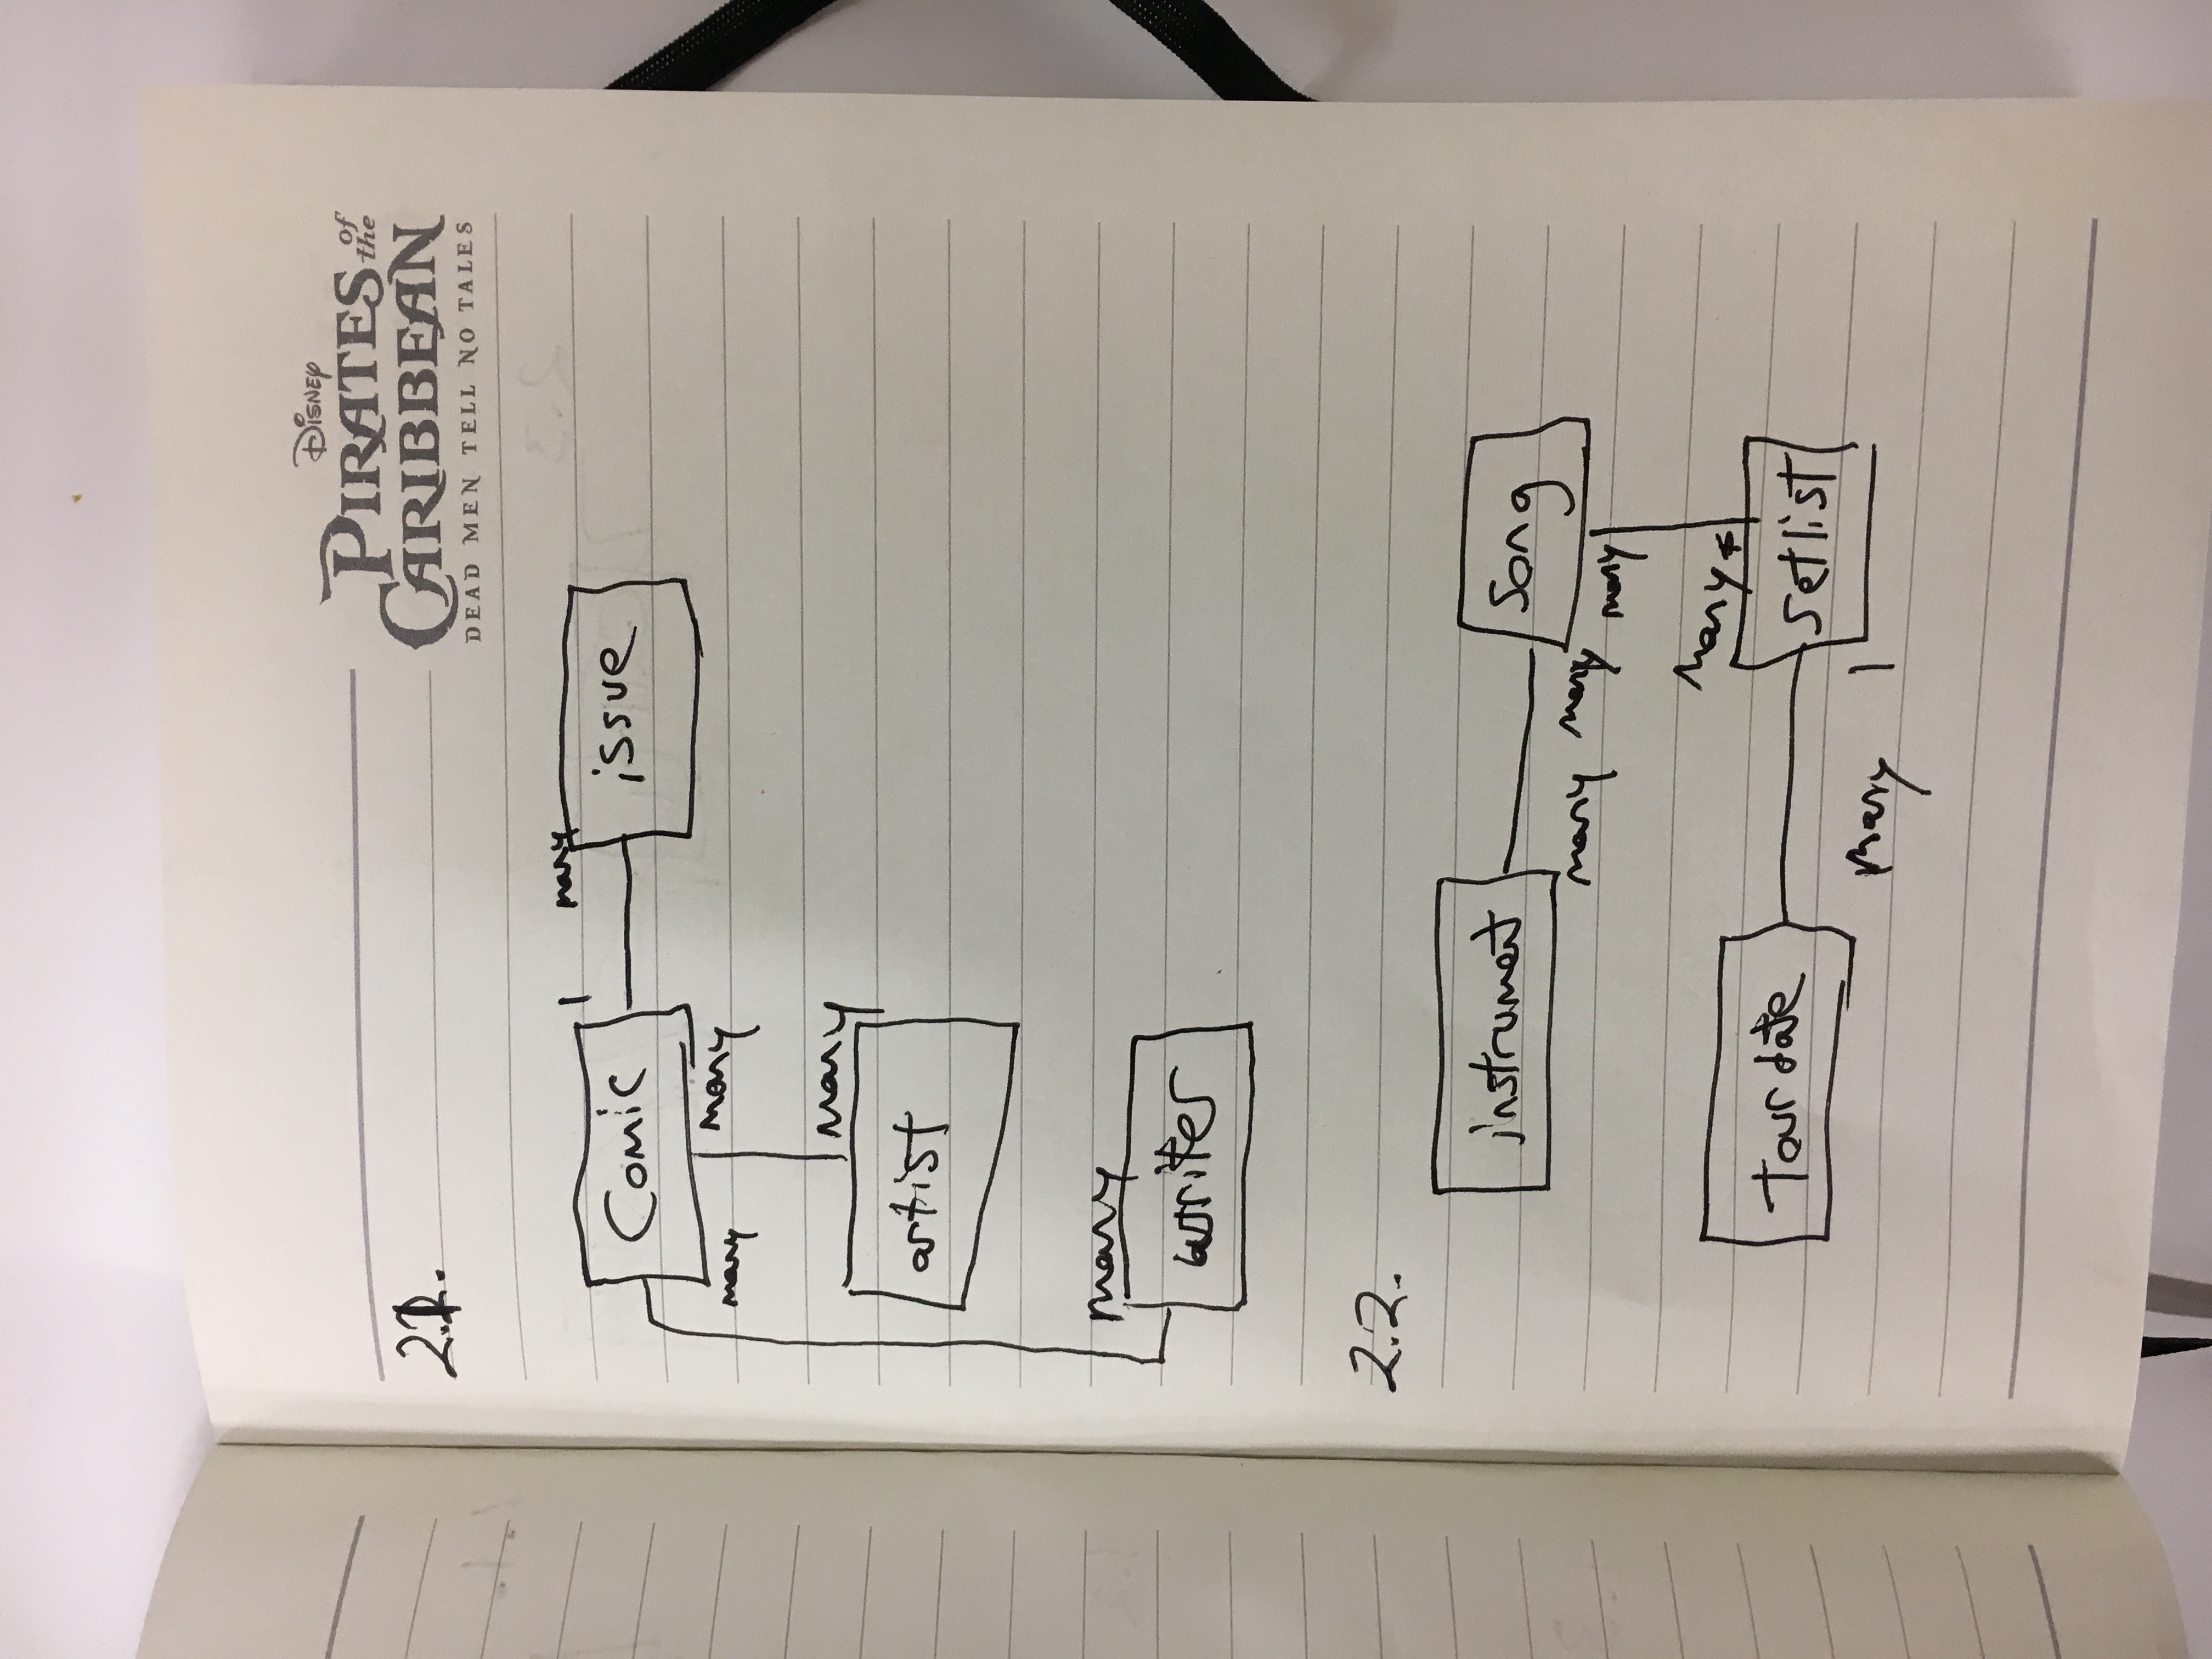 DISNEY
PIRATES of the
CARIBBEAN
DEAD MEN TELL NO TALES
2.1.
1 many
Comic issue
many many
many
artist
many
writer
2.2.
instrument song
many many
many
many *
tour date setlist
many 1